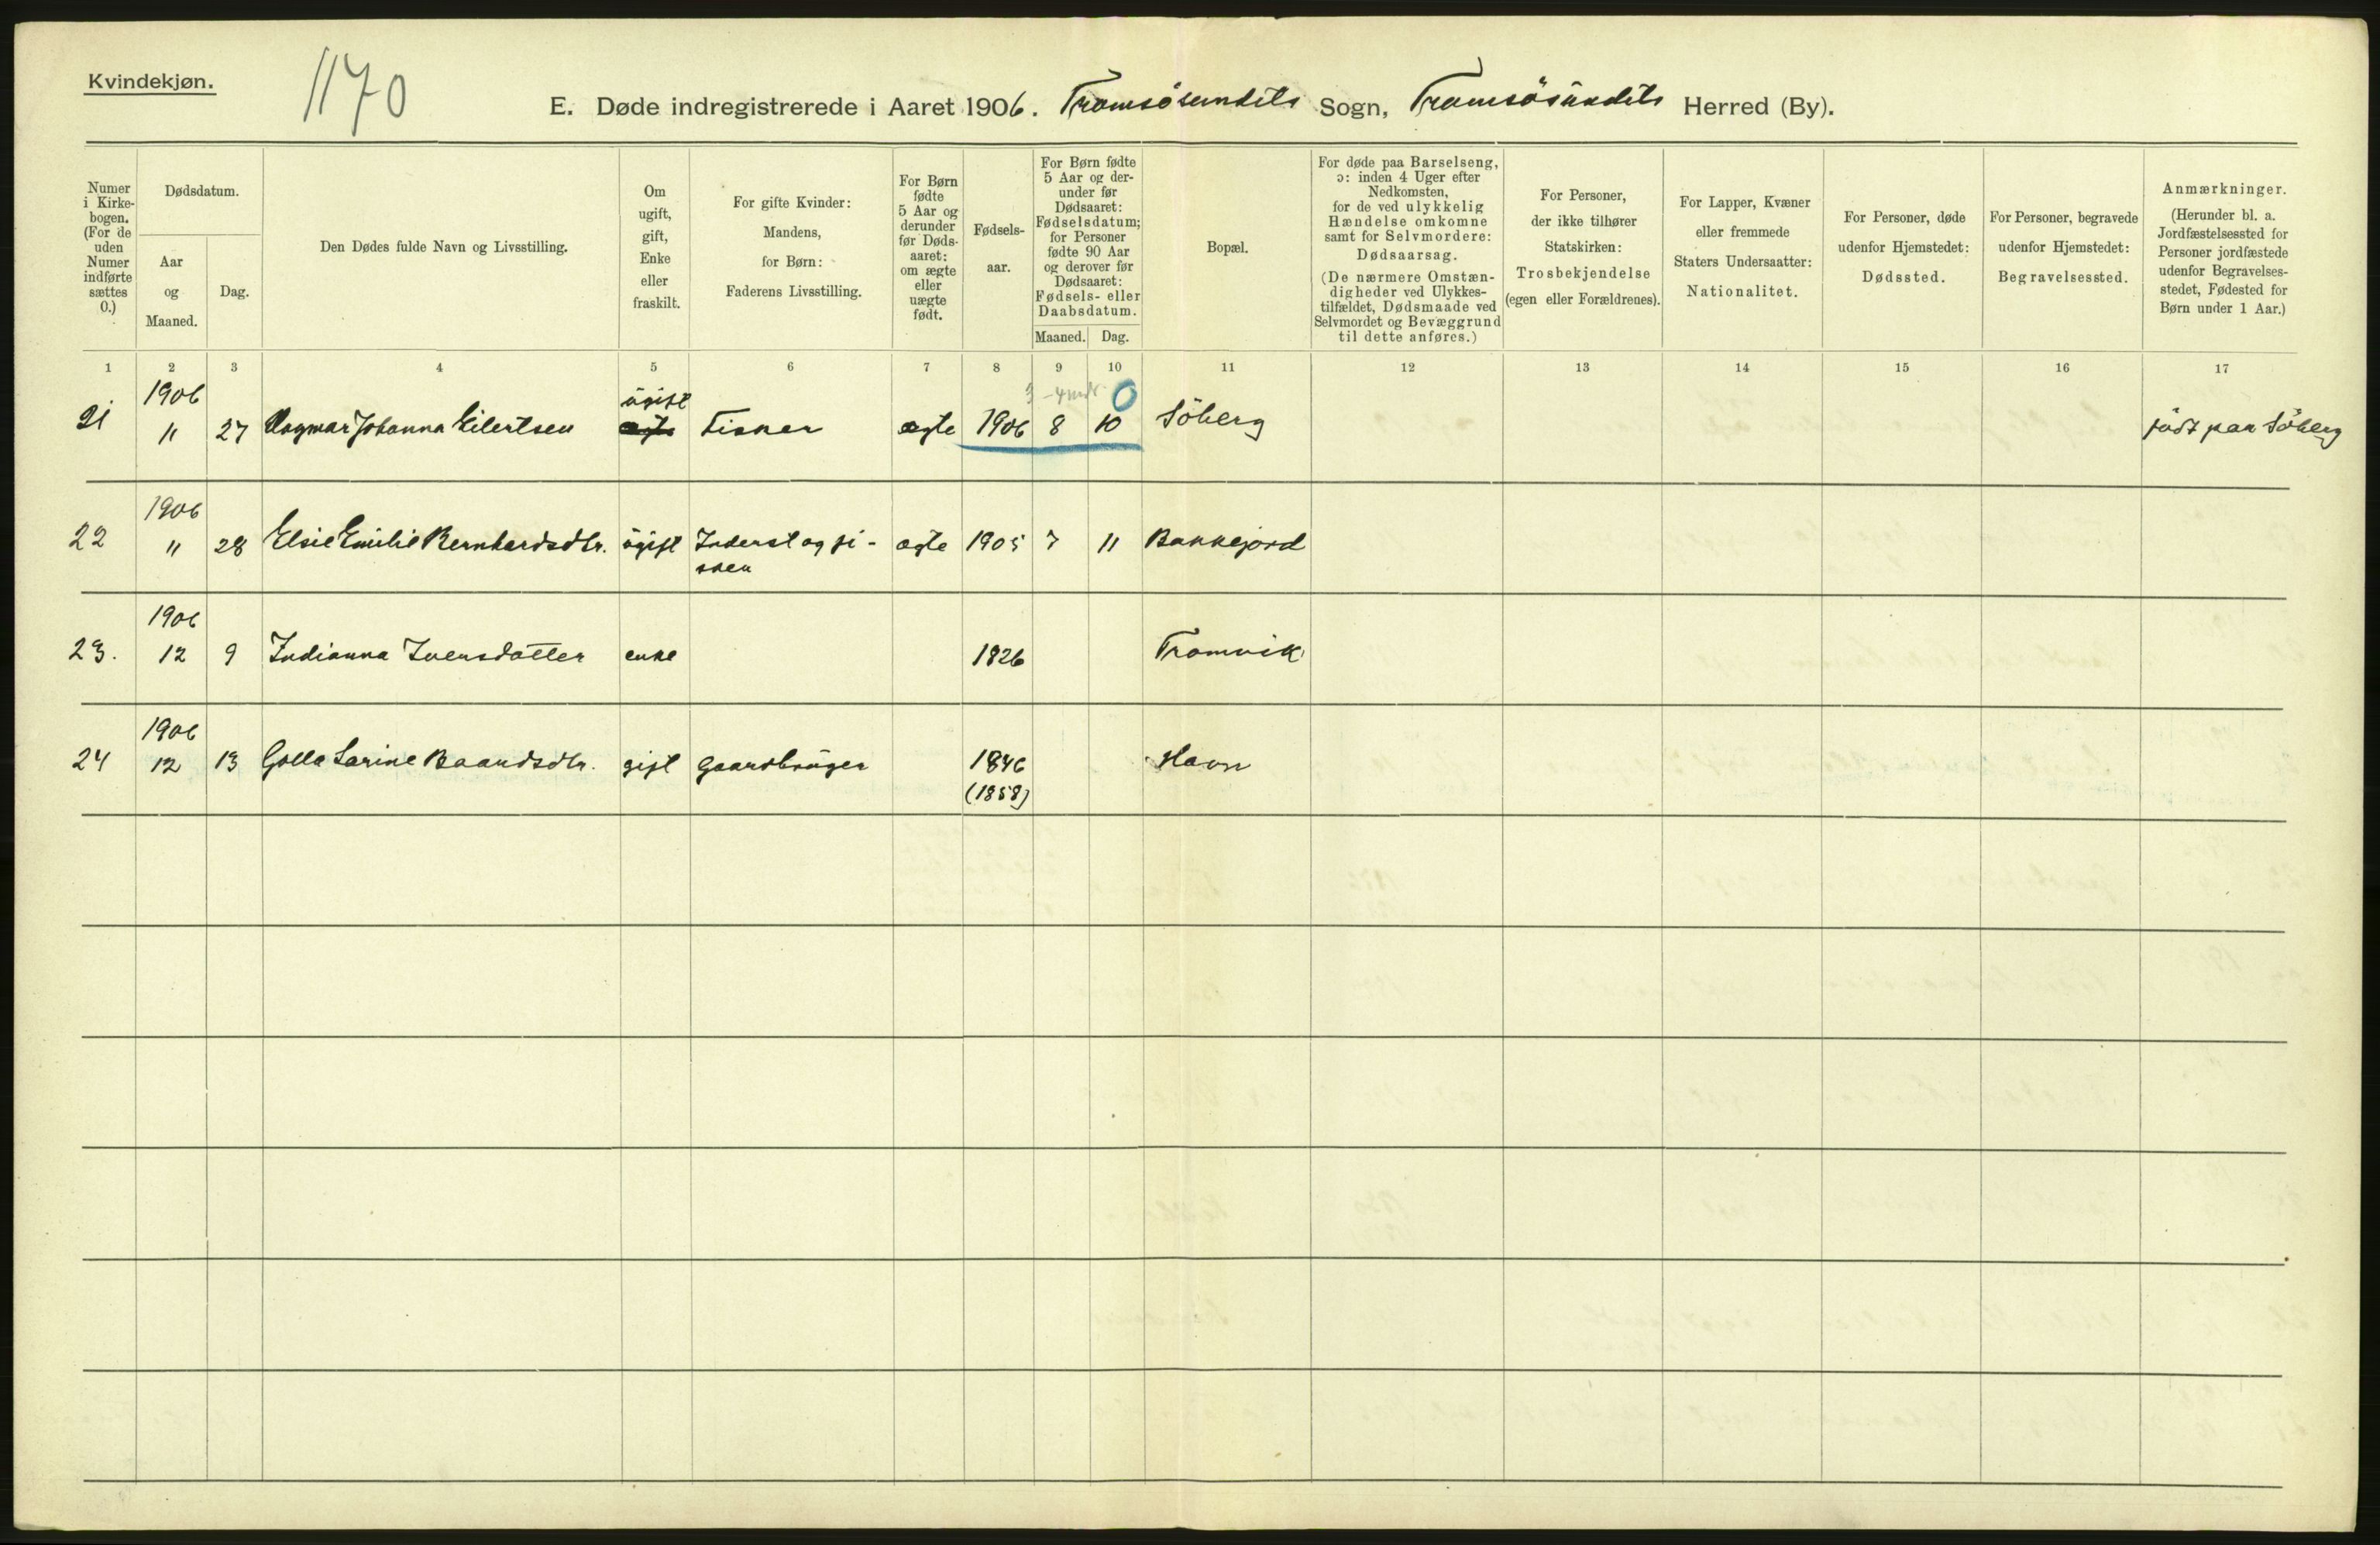 Kvindekjøn.
1170
E. Døde indregistrerede i Aaret 1906. Tromsösundets Sogn, Tromsösundets Herred (By).
Numer i Kirke-bogen. (For de uden Numer indførte sættes 0.)
Dødsdatum.
Aar og Maaned.
Dag.
Den Dødes fulde Navn og Livsstilling.
Om ugift, gift, Enke eller fraskilt.
For gifte Kvinder: Mandens, for Børn: Faderens Livsstilling.
For Børn fødte 5 Aar og derunder før Døds-aaret: om ægte eller uægte født.
Fødsels-aar.
For Børn fødte 5 Aar og der-under før Dødsaaret: Fødselsdatum; for Personer fødte 90 Aar og derover før Dødsaaret: Fødsels- eller Daabsdatum.
Maaned. Dag.
Bopæl.
For døde paa Barselseng, ɔ: inden 4 Uger efter Nedkomsten, for de ved ulykkelig Hændelse omkomne samt for Selvmordere: Dødsaarsag. (De nærmere Omstæn-digheder ved Ulykkes-tilfældet, Dødsmaade ved Selvmordet og Bevæggrund til dette anføres.)
For Personer, der ikke tilhører Statskirken: Trosbekjendelse (egen eller Forældrenes).
For Lapper, Kvæner eller fremmede Staters Undersaatter: Nationalitet.
For Personer, døde udenfor Hjemstedet: Dødssted.
For Personer, begravede udenfor Hjemstedet: Begravelsessted.
Anmærkninger. (Herunder bl. a. Jordfæstelsessted for Personer jordfæstede udenfor Begravelses-stedet, Fødested for Børn under 1 Aar.)
1 2 3 4 5 6 7 8 9 10 11 12 13 14 15 16 17
3-4 mdr 0
1906 ugift
21 11 27 Dagmar Johanna Eilertsen Fisker ægte 1906 8 10 Söberg födt paa Söberg
1906
22 11 28 Elsie Emilie Bernhardsdtr. ugift Inderst og fi-
sker
ægte 1905 7 11 Bakkejord
1906
23. 12 9 Indianna Ivensdatter enke 1826 Tromvik
1906
24 12 13 Golla Sarine Baardsdtr. gift Gaardbruger 1846 Havn
(1858)